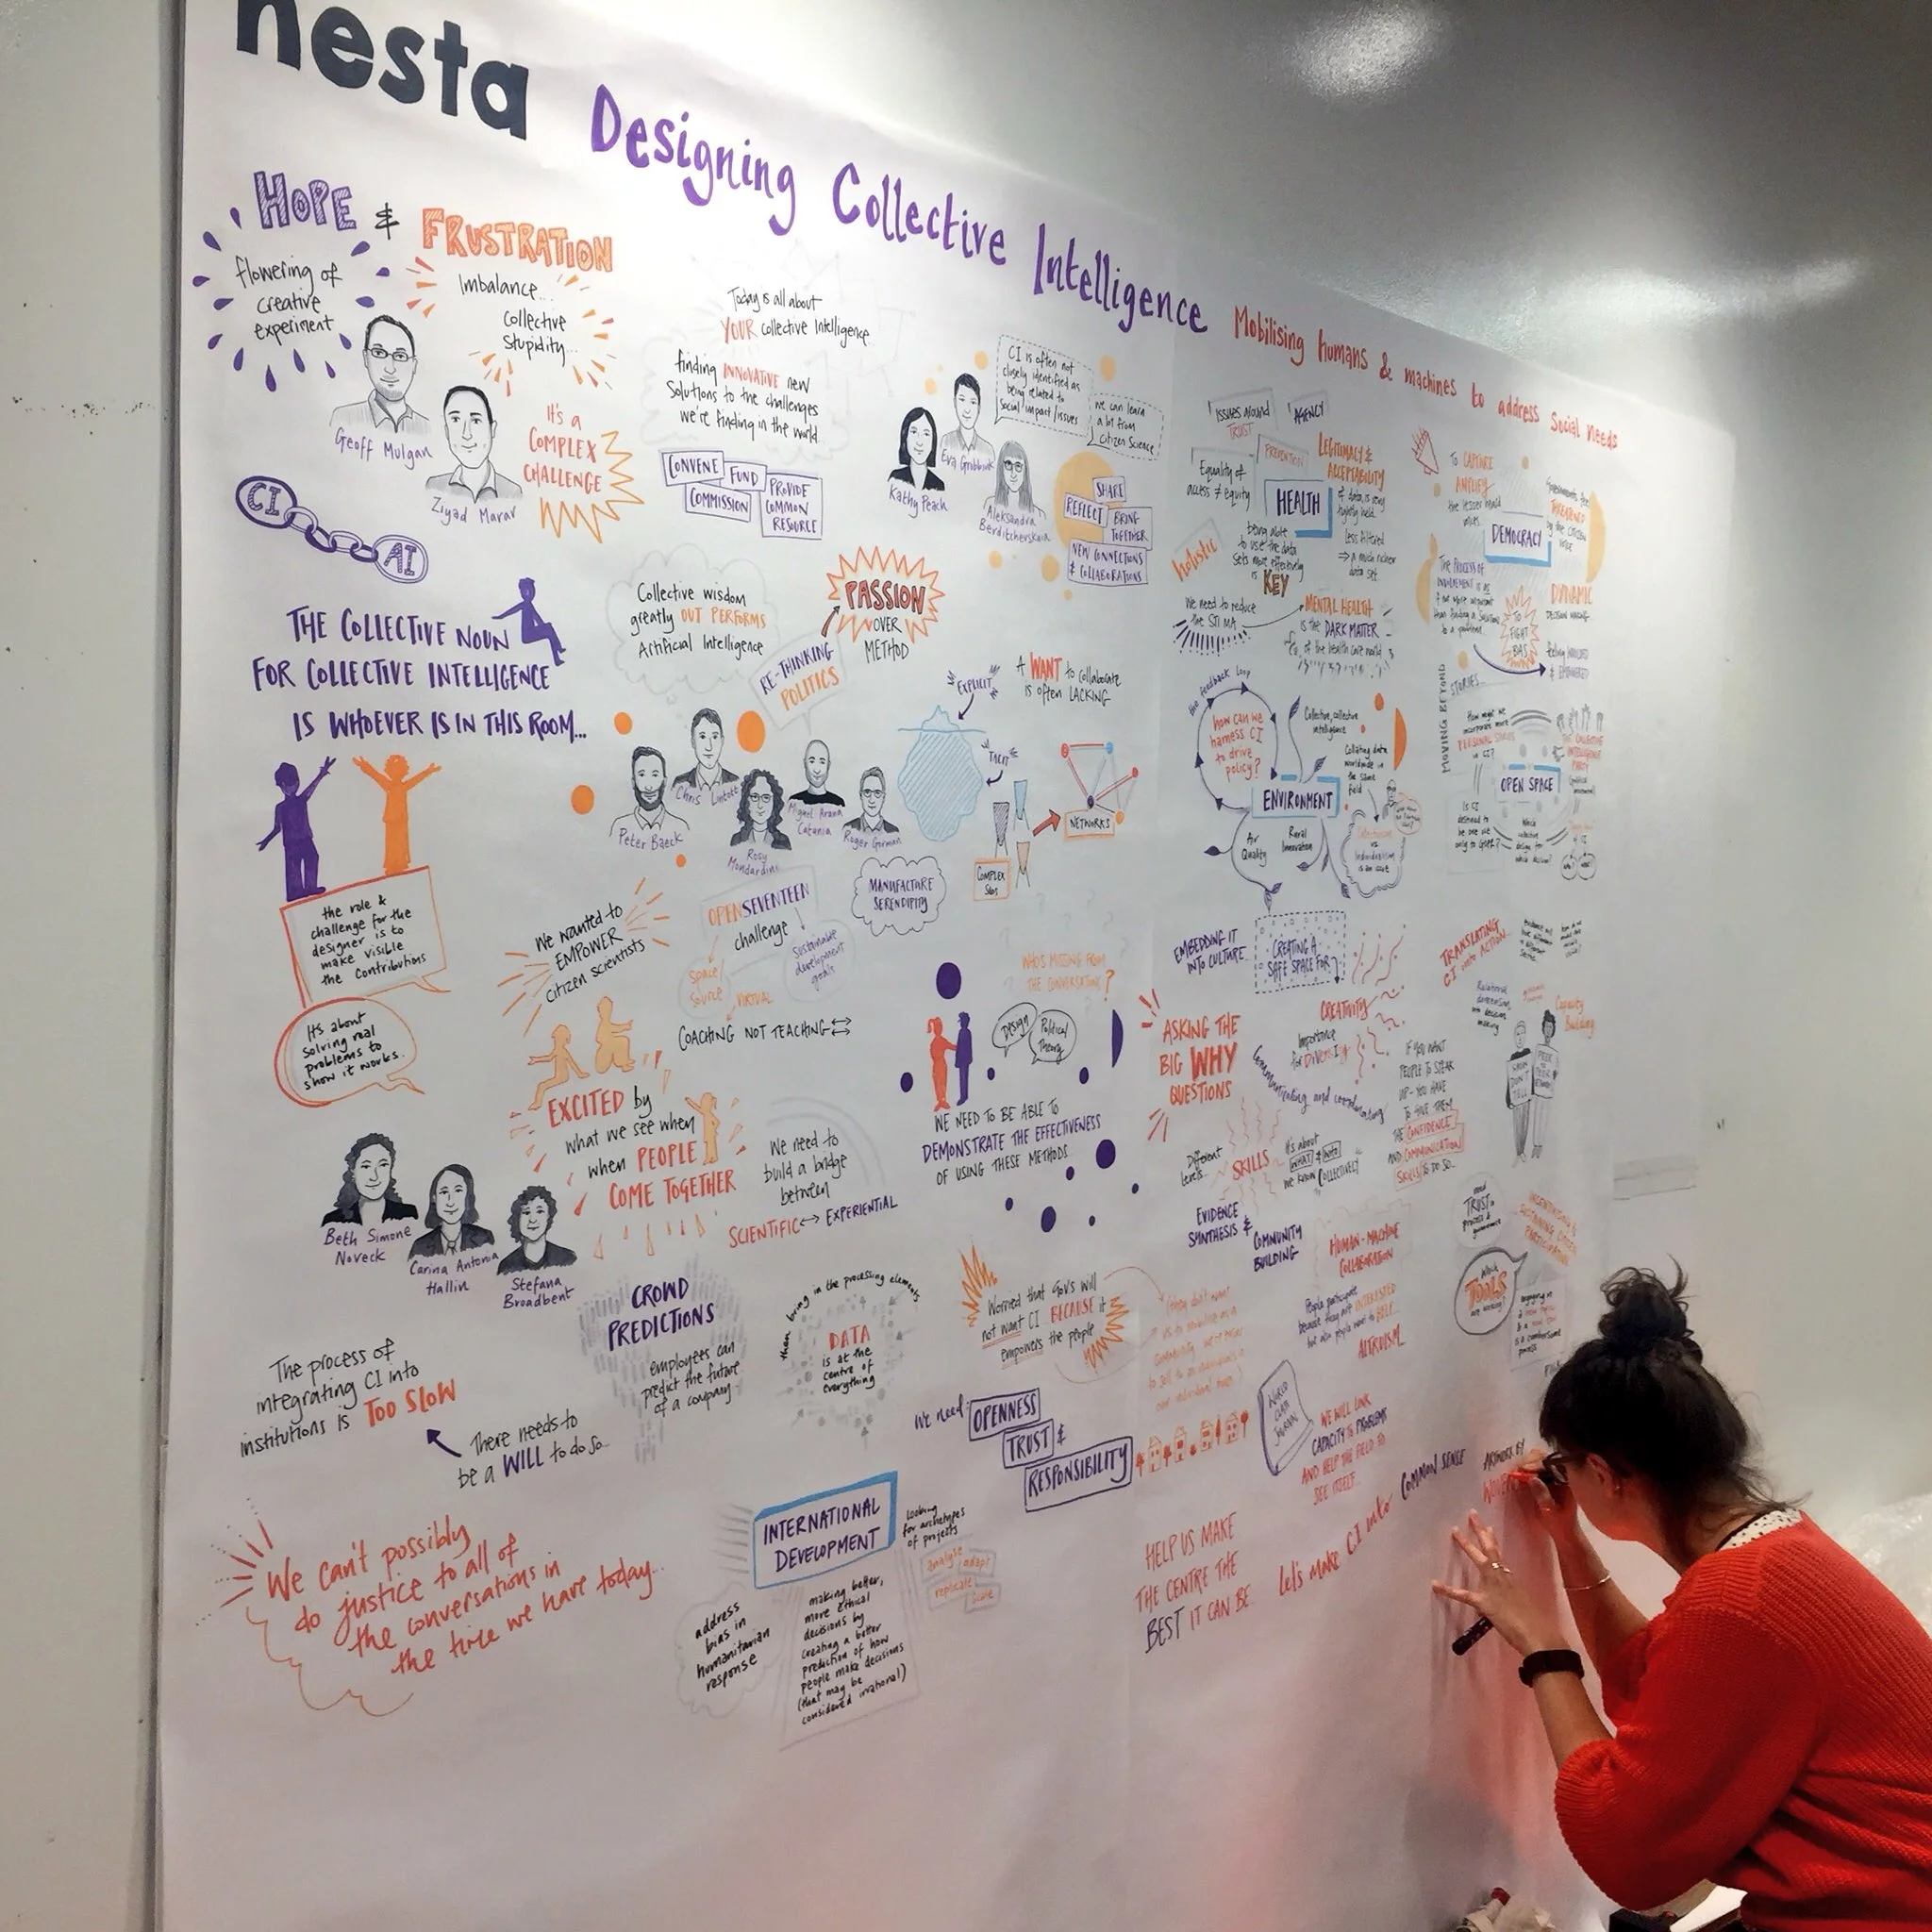 nesta
Designing Collective Intelligence
Mobilising humans & machines to address Social needs
HOPE & FRUSTRATION
flowering of
creative
experiment
Imbalance...
Collective
Stupidity...
Geoff Mulgan
Ziyad Marar
IT'S A
COMPLEX
CHALLENGE
CI
AI
THE COLLECTIVE NOUN
FOR COLLECTIVE INTELLIGENCE
IS WHOEVER IS IN THIS ROOM...
the role &
challenge for the
designer is to
make visible
the contributions
It's about
solving real
problems to
show it works.
Beth Simone
Noveck
Carina Antonia
Hallin
Stefana
Broadbent
The process of
integrating CI into
institutions is TOO SLOW
There needs to
be a WILL to do so...
We can't possibly
do justice to all of
the conversations in
the time we have today...
Today is all about
YOUR collective Intelligence
finding INNOVATIVE new
Solutions to the challenges
we're finding in the world
CONVENE
FUND
COMMISSION
PROVIDE
COMMON
RESOURCE
Collective wisdom
greatly OUT PERFORMS
Artificial Intelligence
RE-THINKING
POLITICS
PASSION
OVER
METHOD
Peter Baeck
Chris Lintott
Rosy
Mondardini
Miguel Arana
Catania
Roger Gorman
We wanted to
EMPOWER
citizen scientists
OPENSEVENTEEN
challenge
Space/
Source
VIRTUAL
Sustainable
development
goals
MANUFACTURE
SERENDIPITY
COACHING NOT TEACHING
EXCITED by
what we see when
when PEOPLE
COME TOGETHER
We need to
build a bridge
between
SCIENTIFIC EXPERIENTIAL
CROWD
PREDICTIONS
employees can
predict the future
of a company
then bring in the processing elements
DATA
is at the
centre of
everything
INTERNATIONAL
DEVELOPMENT
looking
for archetypes
of projects
analyse
adapt
replicate
scale
address
bias in
humanitarian
response
making better,
more ethical
decisions by
creating a better
prediction of how
people make decisions
(that may be
considered irrational)
Kathy Peach
Eva Grobbink
Aleksandra
Berditchevskaia
CI is often not
closely identified as
being related to
social impact/issues
we can learn
a lot from
citizen Science
SHARE
REFLECT
BRING
TOGETHER
NEW CONNECTIONS
& COLLABORATIONS
EXPLICIT
TACIT
A WANT to collaborate
is often LACKING
NETWORKS
COMPLEX
WHO'S MISSING FROM
THE CONVERSATION?
Design
Political
Theory
WE NEED TO BE ABLE TO
DEMONSTRATE THE EFFECTIVENESS
OF USING THESE METHODS
Worried that Gov's will
not want CI BECAUSE it
empowers the people
We need:
OPENNESS
TRUST &
RESPONSIBILITY
ISSUES around
TRUST
AGENCY
PREVENTION
LEGITIMACY &
ACCEPTABILITY
Equality of
access ≠ equity
HEALTH
of data is very
tightly held
Less altered
⇒ a much richer
data set
holistic
being able
to use the data
sets more effectively
is KEY
We need to reduce
MENTAL HEALTH
is the DARK MATTER
of the health care world
feedback loop
how can we
harness CI
to drive
policy?
Collective, collective
intelligence
Collating data
worldwide in
the same
field
ENVIRONMENT
Air
Quality
Rural
Innovation
vs
individualism
is an issue
EMBEDDING IT
INTO CULTURE
CREATING A
SAFE SPACE FOR
CREATIVITY
importance
for DIVERSITY
communicating and coordinating
ASKING THE
BIG WHY
QUESTIONS
IF YOU WANT
PEOPLE TO SPEAK
UP - YOU HAVE
TO GIVE THEM
THE CONFIDENCE
AND COMMUNICATION
SKILLS TO DO SO...
Different
levels...
SKILLS
it's about
WHAT & WHO
we know COLLECTIVELY
EVIDENCE
SYNTHESIS &
COMMUNITY
BUILDING
HUMAN-MACHINE
COLLABORATION
People participate
because they are INTERESTED
but also people want to HELP...
ALTRUISM
WORLD
CLASS
JOURNAL
WE WILL LINK
CAPACITY to PROBLEMS
AND HELP THE FIELD TO
SEE ITSELF...
HELP US MAKE
THE CENTRE THE
BEST IT CAN BE.
Let's make CI into COMMON SENSE
TO CAPTURE
AMPLIFY
the lesser heard
voices...
DEMOCRACY
THREATENED
by the citizen
voice
The PROCESS OF
INVOLVEMENT is as
if not more important
than finding a solution
to a problem...
TO
FIGHT
BIAS
DYNAMIC
DECISION MAKING
feeling INVOLVED
& EMPOWERED
MOVING BEYOND
STORIES...
How might we
incorporate more
PERSONAL STORIES
in CI?
OPEN SPACE
THE COLLECTIVE
INTELLIGENCE
PARTY
TRANSLATING
CI into ACTION...
Capacity
Building
SHOW
DON'T
TELL
PEER
TO
PEER
TRUST in
process &
Which
TOOLS
are working?
ARTWORK BY